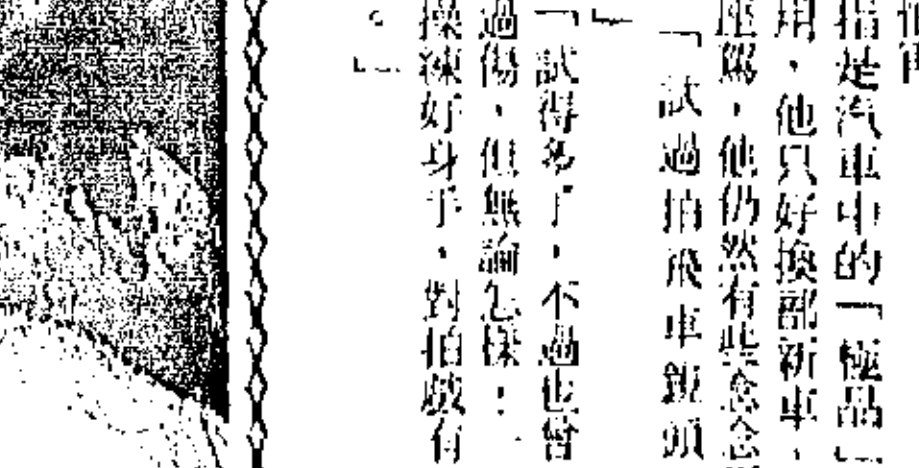 指是汽車中的「極品」
用,他只好換部新車,
座駕,他仍然有些念念
「試過拍飛車鏡頭
」
「試得多了,不過也曾
過傷,但無論怎樣,
操練好身手,對拍戲有
。」